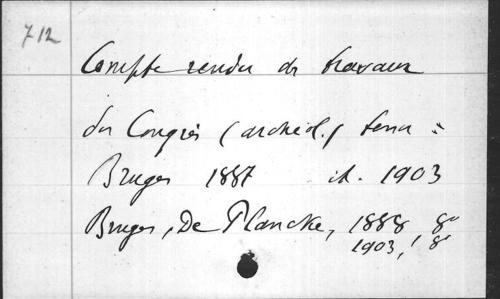 712
Compte rendu des travaux
du Congrès (archéol.) tenu à
Bruges 1887 id. 1903
Bruges, De Plancke, 1888, 8°
1903, 8°